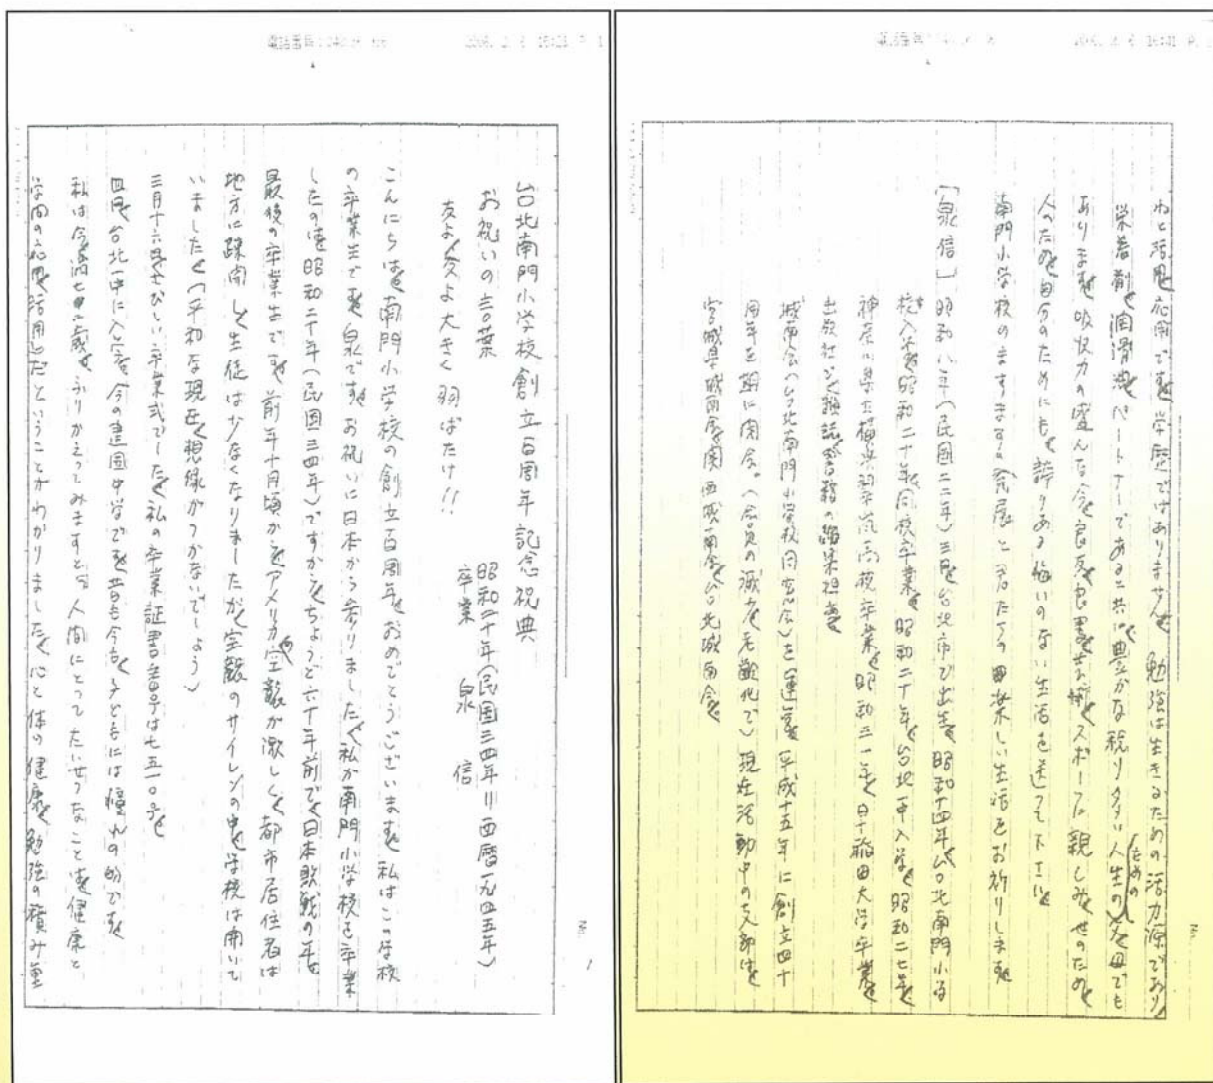 台北南門小学校創立百周年記念祝典
お祝いの言葉
友よ、友よ大きく羽ばたけ!!
昭和二十年(民国三四年=西暦一九四五年)
卒業 泉 信
こんにちは。南門小学校の創立百周年、おめでとうございます。私はこの学校
の卒業生です。泉です。お祝いに日本から参りました。私が南門小学校を卒業
したのは、昭和二十年(民国三四年)ですから、ちょうど六十年前で、日本敗戦の年、
最後の卒業生です。前年十月頃から、アメリカの空襲が激しく、都市居住者は
地方に疎開し、生徒は少なくなりましたが、空襲のサイレンの中、学校は開いて
いました。(平和な現在、想像がつかないでしょう)
三月十六日、さびしい卒業式でした。私の卒業証書番号は七五一〇号。
四月、台北一中に入学。今の建国中学です。昔も今も、子どもには憧れの的です。
私は今、満七二歳。ふりかえってみますと、人間にとってたいせつなことは、健康と
学問の応用、活用だということがわかりました。心と体の健康、勉強の積み重
ねと活用、応用です。学歴ではありません。勉強は生きるための活力源であり、
栄養剤、潤滑油、パートナーである と共に、豊かな稔り多い人生のための父母でも
あります。吸収力の盛んな今、良友、良書、 スポーツに親しみ、世のため、
人のため、自分のためにも、誇りある悔いのない生活を送って下さい。
南門小学校のますますの発展と、君たちの 楽しい生活をお祈りします。
[泉信] 昭和八年(民国二二年)三月、台北市で出生。昭和十四年、台北南門小学
校入学、昭和二十年、同校卒業。昭和二十年、台北一中入学。昭和二七年、
神奈川県立横浜翠嵐高校卒業。昭和三一年、早稲田大学卒業。
出版社で、雑誌、書籍の編集担当。
城南会(台北南門小学校同窓会)を運営。平成十五年に創立四十
周年を期に閉会。(会員の減少、老齢化で)現在活動中の支部は、
宮城県城南会、関西城南会、台北城南会。